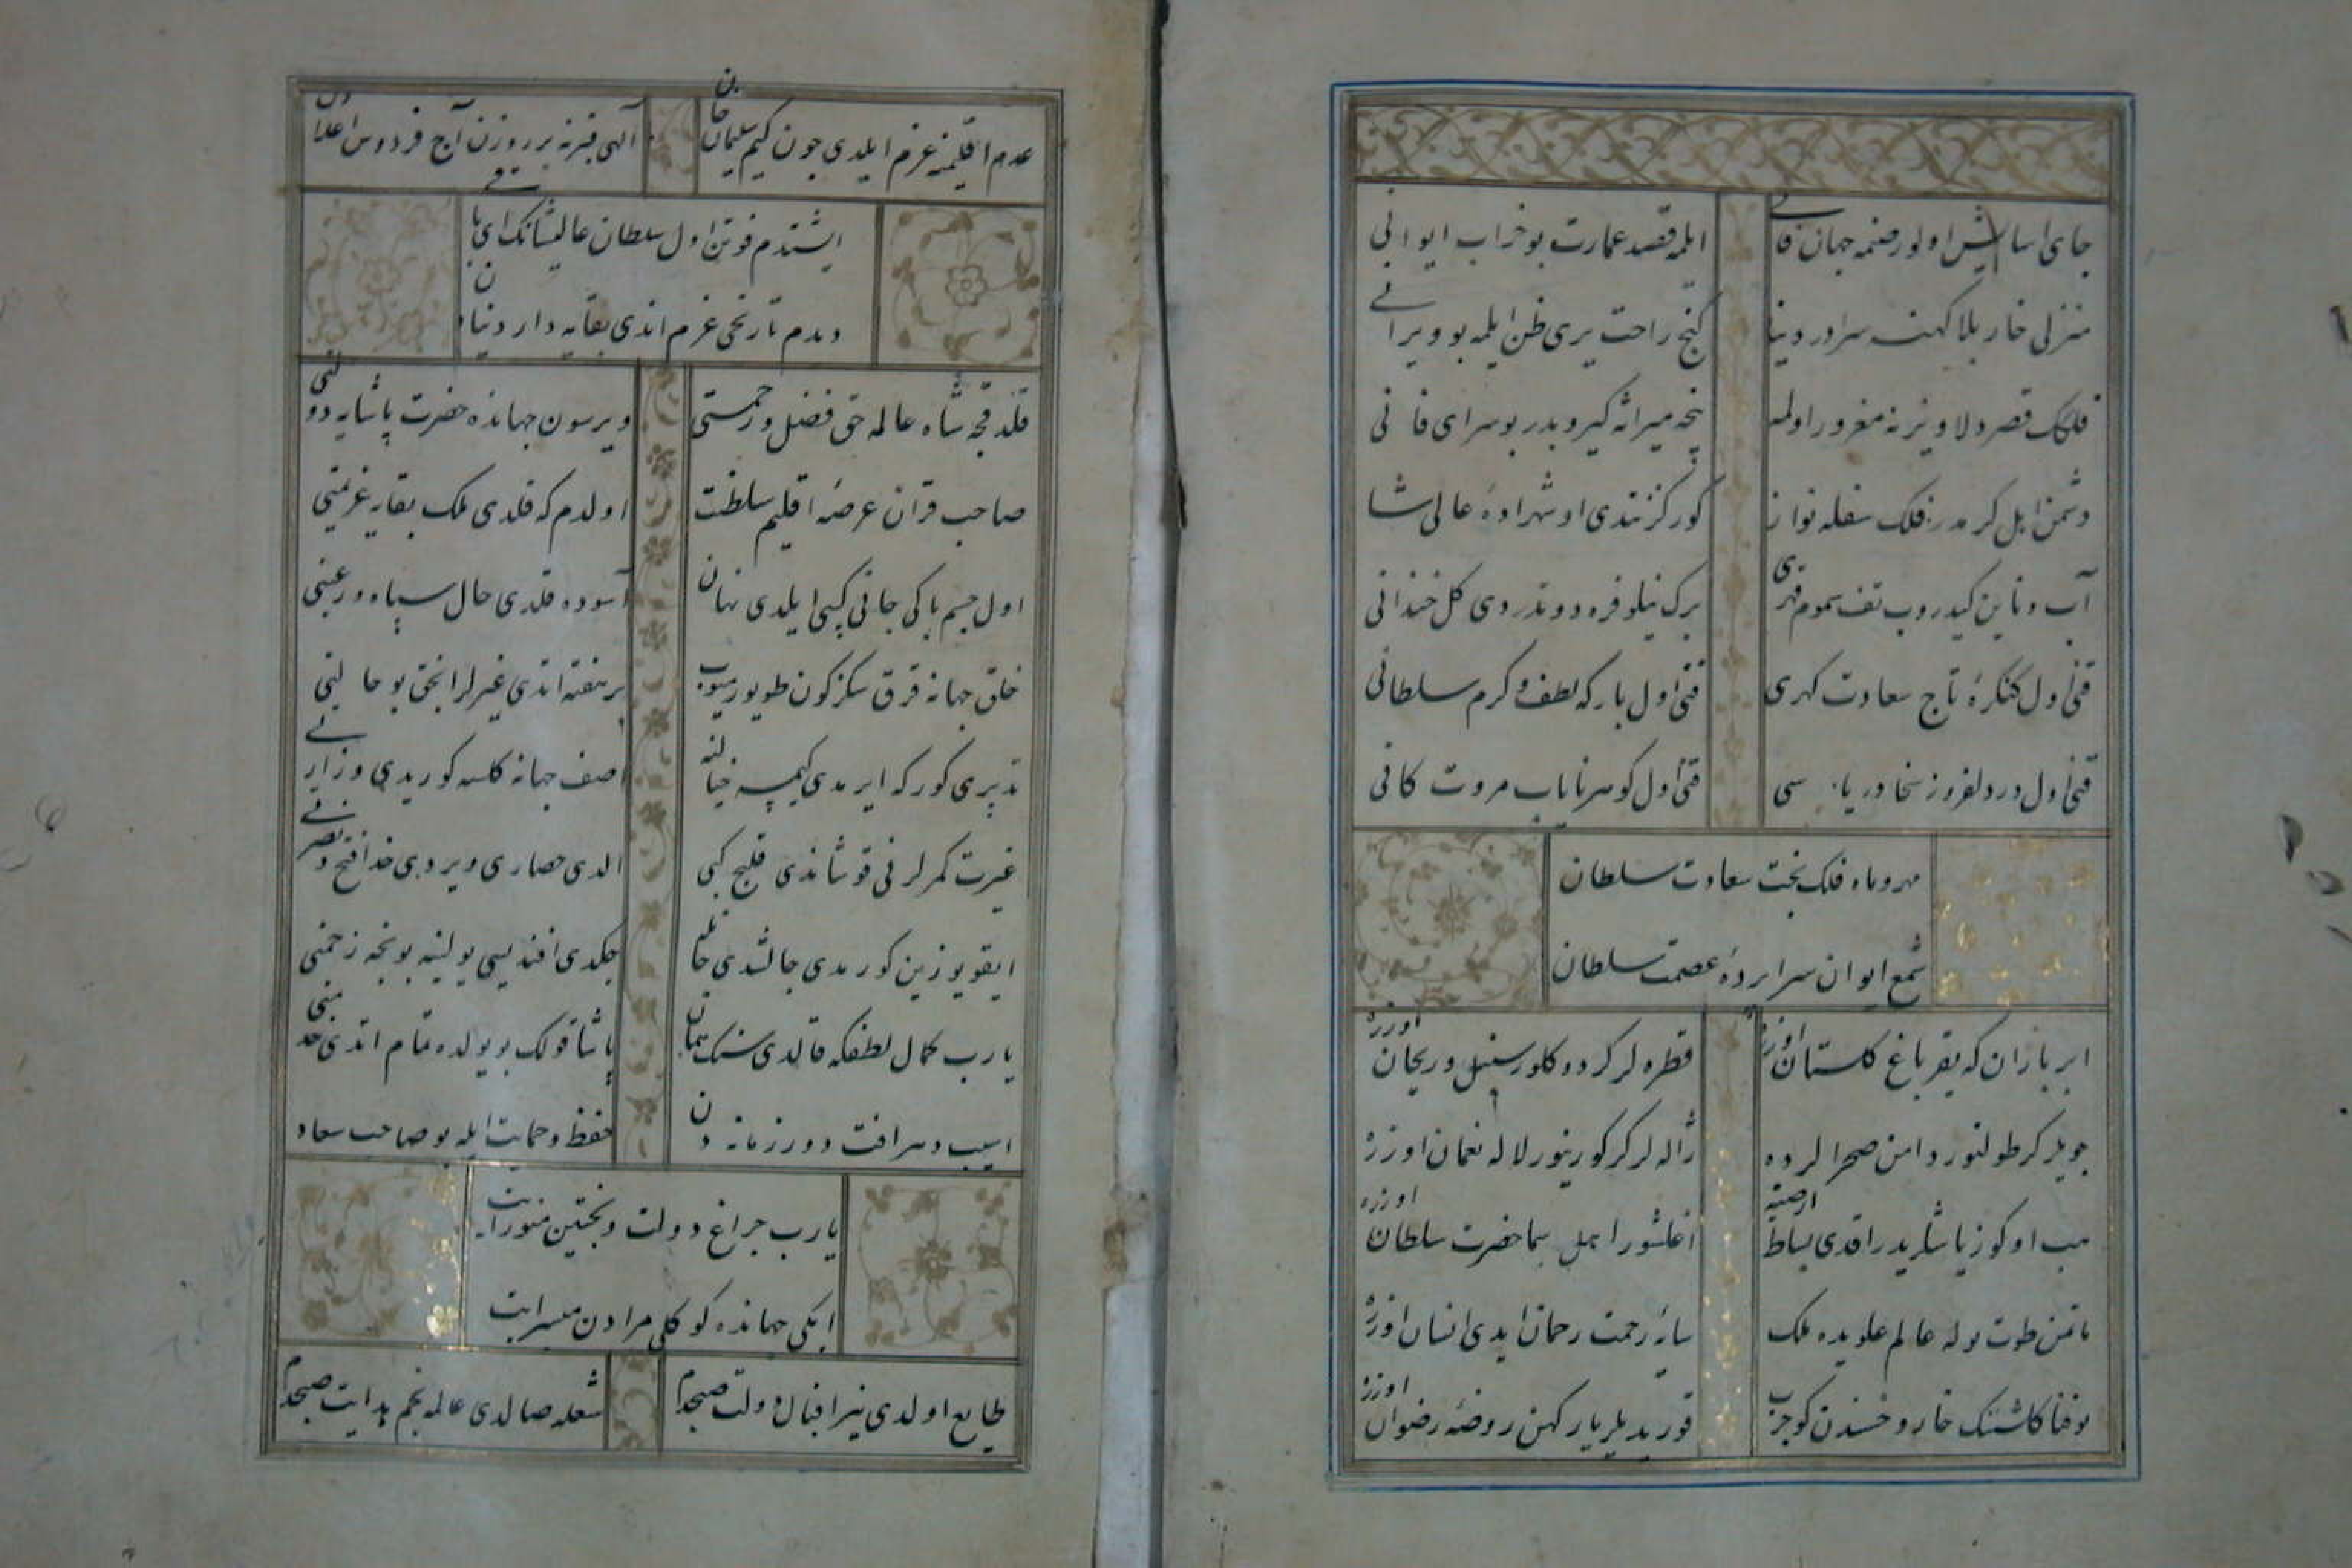 جای اسایش اولورضنمه جهان فانی
ایلمه قصد عمارت بو خراب ایوانی
منزلی خار بلا کهنه سرادر دنیا
کنج راحت یری ظن ایلمه بو ویرانی
فلکک قصر دلاویزنه مغرور اولمه
نیجه میراثه کیروبدر بو سرای فانی
دشمن اهل کرمدر فلک سفله نواز
کورکزتدی او شهزاده عالی شانی
آب وتابن کیدروب تف سموم قهری
برک نیلوفره دوندردی کل خندانی
قنی اول کنکرهٔ تاج سعادت کهری
قنی اول بارکه لطف و کرم سلطانی
قنی اول در دلفروز سخا دریاسی
قنی اول کوهر نایاب مروت کانی
مهر وماه فلک بخت سعادت سلطان
شمع ایوان سراپردهٔ عصمت سلطان
ابر باران که یغر باغ کلستان اوزره
قطره لر کردو کلور سنبل وریحان اوزره
جویلر کر طولنور دامن صحرالرده
ژاله لر کر کورینور لاله نعمان اوزره
هب او کوز یاشلریدر اقدی بساط ارضه
اغلشور اهل سما حضرت سلطان اوزره
ماتمن طوتسه نوله عالم علویده ملک
سایهٔ رحمت رحمان ایدی انسان اوزره
بو فنا کلشننک خار و خسندن کوچرب
قوریدیلر یارکهن روضهٔ رضوان اوزره
عدم اقلیمنه عزم ایلدی چون کیم سلیمان خان
الهی قبرنه بر روزن آچ فردوس اعلادن
ایشتدم فوتن اول سلطان عالیشانک ای باقی
دیدم تاریخی عزم اتدی بقایه دار دنیادن
قلدقجه شاه عالمه حق فضل ورحمتی
ویرسون جهانده حضرت پاشایه دولتی
صاحب قران عرصهٔ اقلیم سلطنت
اولدم که قلدی ملک بقایه عزیمتی
اول جسم پاکی جانی کبی ایلدی نهان
آسوده قلدی حال سپاه ورعیتی
خلق جهانه قرق سکز کون طویورمیوب
بر نفته اتدی غیرلر انجق بو حالتی
تدبیری کور که ایرمدی کیمسه خیالنه
اصف جهانه کلسه کوریدی وزارتی
غیرت کمرلرنی قوشاندی قلیج کبی
الدی حصاری ویردی خدا فتح ونصرتی
ایقو یوزین کورمدی چالشدی خانله
چکدی افندیسی یولینه بونجه زحمتی
یارب کمال لطفکه قالدی سنک همان
پاشا قولک بو یولده تمام اتدی خدمتی
اسیب دهر افت دور زمانه دن
حفظ وحمایت ایله بو صاحب سعادتی
یارب چراغ دولت وبختین منور ایت
ایکی جهانده کوکلی مرادن میسر ایت
طالع اولدی نیر اقبال دولت صبحدم
شعله صالدی عالمه نجم هدایت صبحدم